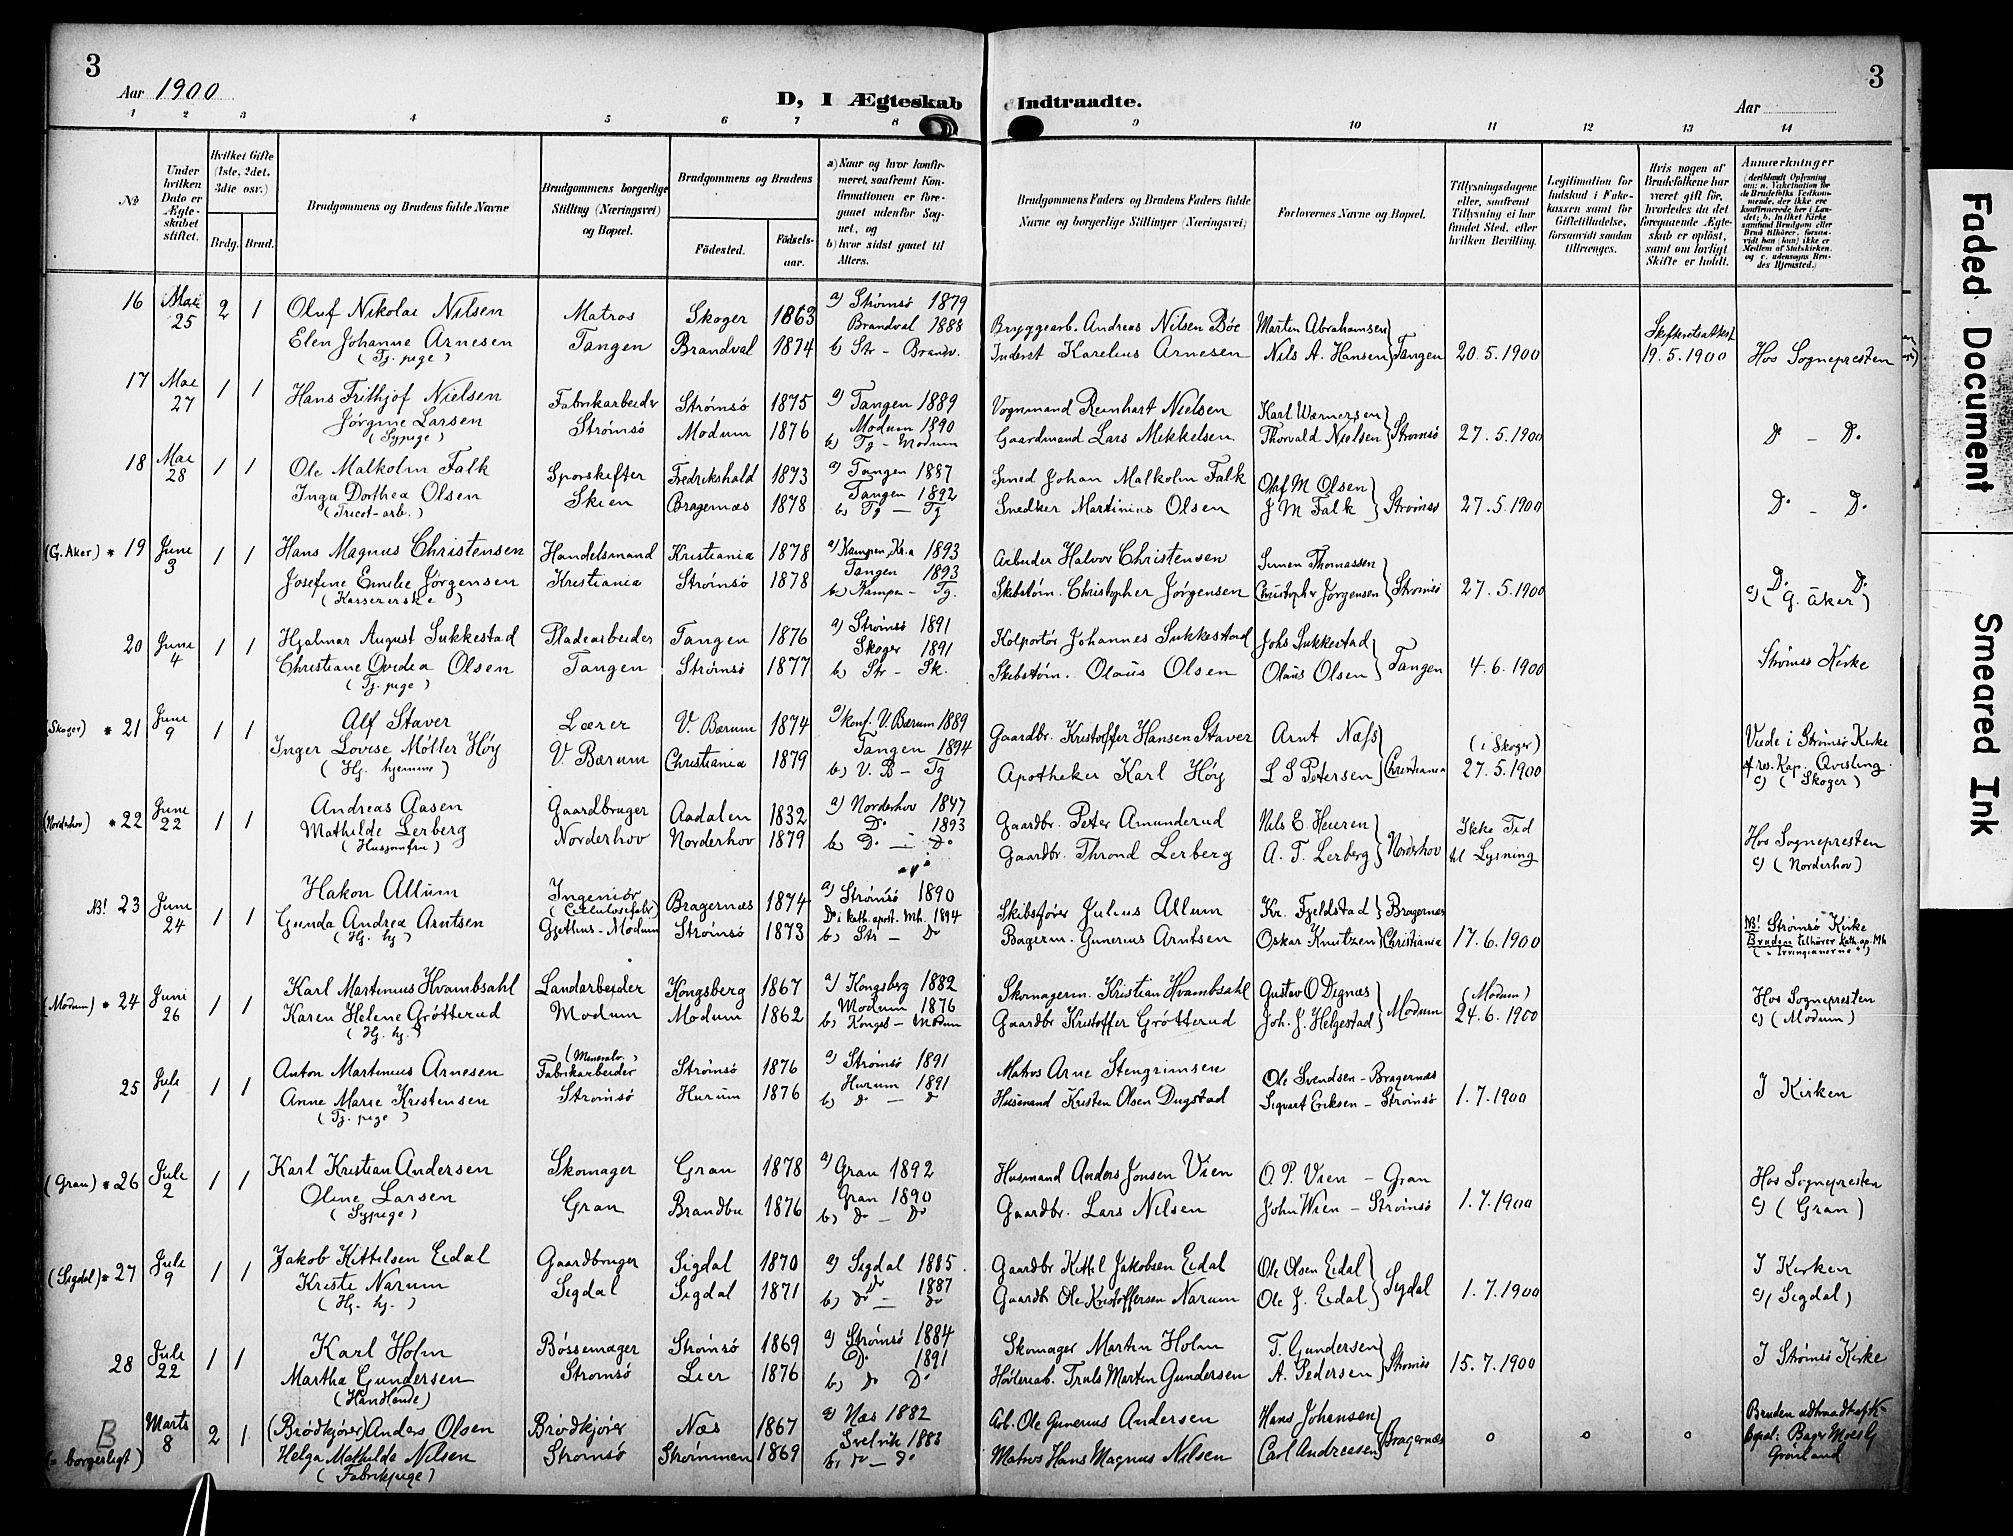 3
Aar 1900
D, I Ægteskab Indtraadte.
Aar
3
1 2 3 4 5 6 7 8 9 10 11 12 13 14
No
Under hvilken Dato er Ægteskabet stiftet.
Hvilket Gifte (1ste, 2det, 3die osv.)
Brdg. Brud.
Brudgommens og Brudens fulde Navne
Brudgommens borgerlige Stilling (Næringsvei) og Bopæl.
Brudgommens og Brudens
Fødested. Fødselsaar.
a) Naar og hvor konfirmeret, saafremt Konfirmationen er foregaaet udenfor Sognet, og
b) hvor sidst gaaet til Alters.
Brudgommens Faders og Brudens Faders fulde Navne og borgerlige Stillinger (Næringsvei)
Forlovernes Navne og Bopæl.
Tillysningsdagene eller, saafremt Tillysning ei har fundet Sted, efter hvilken Bevilling.
Legitimation for Indskud i Enkekassen samt for Giftetilladelse, forsaavidt saadan tiltrænges.
Hvis nogen af Brudefolkene har været gift før, hvorledes da det foregaaende Ægteskab er opløst, samt om lovligt Skifte er holdt.
Anmærkninger
16 Mai 25 2 1 Oluf Nikolai Nilsen Matros Skoger 1863 a) Strømsø 1879 Bryggearb. Andreas Nilsen Böe Martin Abrahamsen
Elen Johanne Arnesen Tangen Brandval 1874 Brandval 1888 Inderst Karelius Arnesen Nils A. Hansen Tangen 20.5.1900 Skifteretsattest 19.5.1900 Hos Sognepresten
(Tj. pige) b) Str - Brandv.
17 Mai 27 1 1 Hans Frithjof Nielsen Fabrikarbeider Strömsö 1875 a) Tangen 1889 Vognmand Reinhart Nielsen Karl Wernersen
Jørgine Larsen Strömsö Modum 1876 Modum 1890 Gaardmand Lars Mikkelsen Thorvald Nielsen Strømsø 27.5.1900 Do - Do
(Sypige) b) Tg - Modum
18 Mai 28 1 1 Ole Malkolm Falk Sporskifter Fredrikshald 1873 a) Tangen 1887 Smed Johan Malkolm Falk Oluf M Olsen
Inga Dorthea Olsen Skien Bragernæs 1878 Tangen 1892 Snedker Martinius Olsen J M Falk Strømsø 27.5.1900 Do - Do
(Tricot-arb.) b) Tg - Tg
(G. Aker) * 19 June 3 1 1 Hans Magnus Christensen Handelsmand Kristiania 1878 a) Kampen, Kr.a 1893 Arbeider Halvor Christensen Simen Thomassen
Josefine Emilie Jörgensen Kristiania Strømsö 1878 Tangen 1893 Skibstøm. Christopher Jørgensen Christopher Jørgensen Strömsö 27.5.1900 Do Do
(Kassererske) b) Kampen - Tg. c) (G. Aker)
20 June 4 1 1 Hjalmar August Sukkestad Pladearbeider Tangen 1876 a) Strömsö 1891 Kolportör Johannes Sukkestad Johs Sukkestad
Christiane Ovidia Olsen Tangen Strømsö 1877 Skoger 1891 Skibstöm. Olaus Olsen Olaus Olsen Tangen 4.6.1900 Strömsö Kirke
(Tj. pige) b) Str - Sk.
(Skoger) * 21 June 9 1 1 Alf Staver Lærer V. Bærum 1874 a) konf. V. Bærum 1889 Gaardbr. Kristoffer Hansen Staver Arnt Næss (i Skoger) Viede i Strömsö Kirke
Inger Lovise Møller Høy V. Bærum Christiania 1879 Tangen 1894 Apotheker Karl Høy L S Petersen Christiania 27.5.1900 af res. Kap. Qvisling.
(Hj. hjemme) b) V. B - Tg c) (Skoger)
(Norderhov) * 22 June 22 1 1 Andreas Aasen Gaardbruger Aadalen 1832 a) Norderhov 1847 Gaardbr. Peter Amunderud Nils E. Heieren Ikke Tid
Mathilde Lerberg Norderhov Norderhov 1879 Do 1893 Gaardbr. Thrond Lerberg A. T. Lerberg Norderhov til Lysning Hos Sognepresten
(Husjomfru) b) Do - Do c) (Norderhov)
NB! 23 June 24 1 1 Hakon Allum Ingeniör (Cellulosefabr) Bragernæs 1874 a) Strømsö 1890 Skibsfører Julius Allum Kr. Fjeldstad Bragernæs
Gunda Andrea Arntsen Gjethus - Modum Strömsö 1873 Do i kath. apost. Mh. 1894 Bagerm. Gunerius Arntsen Oskar Knutzen Christiania 17.6.1900 NB! Strømsö Kirke
(Hj. hj) b) Str - Do Bruden tilhører kath. ap. Mh ("Irvingianerne")
(Modum) * 24 Juni 26 1 1 Karl Martinius Hvambsahl Landarbeider Kongsberg 1867 a) Kongsberg 1882 Skomagerm. Kristian Hvambsahl Gustav O Dignæs (Modum) Hos Sognepresten
Karen Helene Grøtterud Modum Modum 1862 Modum 1876 Gaardbr Kristoffer Gröterud Joh. J. Helgestad Modum 24.6.1900 c) (Modum)
(Hj. hj.) b) Kongs - Modum
25 Juli 1 1 1 Anton Martinius Arnesen (Mineralv.) Fabrikarbeider Strömsö 1876 a) Strømsö 1891 Matros Arne Stengrimsen Ole Svendsen - Bragernæs
Anne Marie Kristensen Strömsö Hurum 1876 Hurum 1891 Husmand Kristen Olsen Dugstad Sigvart Eriksen - Strömsö 1.7.1900 I Kirken
(Tj. pige) b) Do - Do
(Gran) * 26 Juli 2 1 1 Karl Kristian Andersen Skomager Gran 1878 a) Gran 1892 Husmand Anders Jonsen Vien O. P. Vien - Gran Hos Sognepresten
Oline Larsen Gran Brandbu 1876 Gran 1890 Gaardbr. Lars Nilsen John Wien - Strömsö 1.7.1900 c) (Gran)
(Sypige) b) Do - Do
(Sigdal) * 27 Juli 9 1 1 Jakob Kittilsen Eidal Gaardbruger Sigdal 1870 a) Sigdal 1885 Gaardbr Kittil Jakobsen Eidal Ole Olsen Eidal I Kirken
Kristi Narum Sigdal Sigdal 1871 Do 1887 Gaardb Ole Kristoffersen Narum Ole J. Eidal Sigdal 1.7.1900 c) (Sigdal)
(Hj. hj.) b) Do - Do
28 Juli 22 1 1 Karl Holm Bössemager Strømsö 1869 a) Strömsö 1884 Skomager Martin Holm T. Gundersen
Martha Gundersen Strömsö Lier 1876 Do 1891 Høvleriab. Truls Martin Gundersen A. Pedersen Strömsö 15.7.1900 I Strömsö Kirke
(Handlende) b) Do Do
B Marts 8 2 1 (Brödkjører) Anders Olsen Brödkjører Næs 1867 a) Næs 1882 Arb. Ole Gunerius Andersen Hans Johansen Bruden udtraadt af K-
(= borgerligt) Helga Mathilde Nilsen Strömsö Strömmen 1869 Svelvik 1883 Matros Hans Magnus Nilsen Carl Andreasen Bragernæs o o o Bopæl: Bager Moes G
(Fabrikpige) b) Do - Do Grönland
Faded Document
Smeared Ink